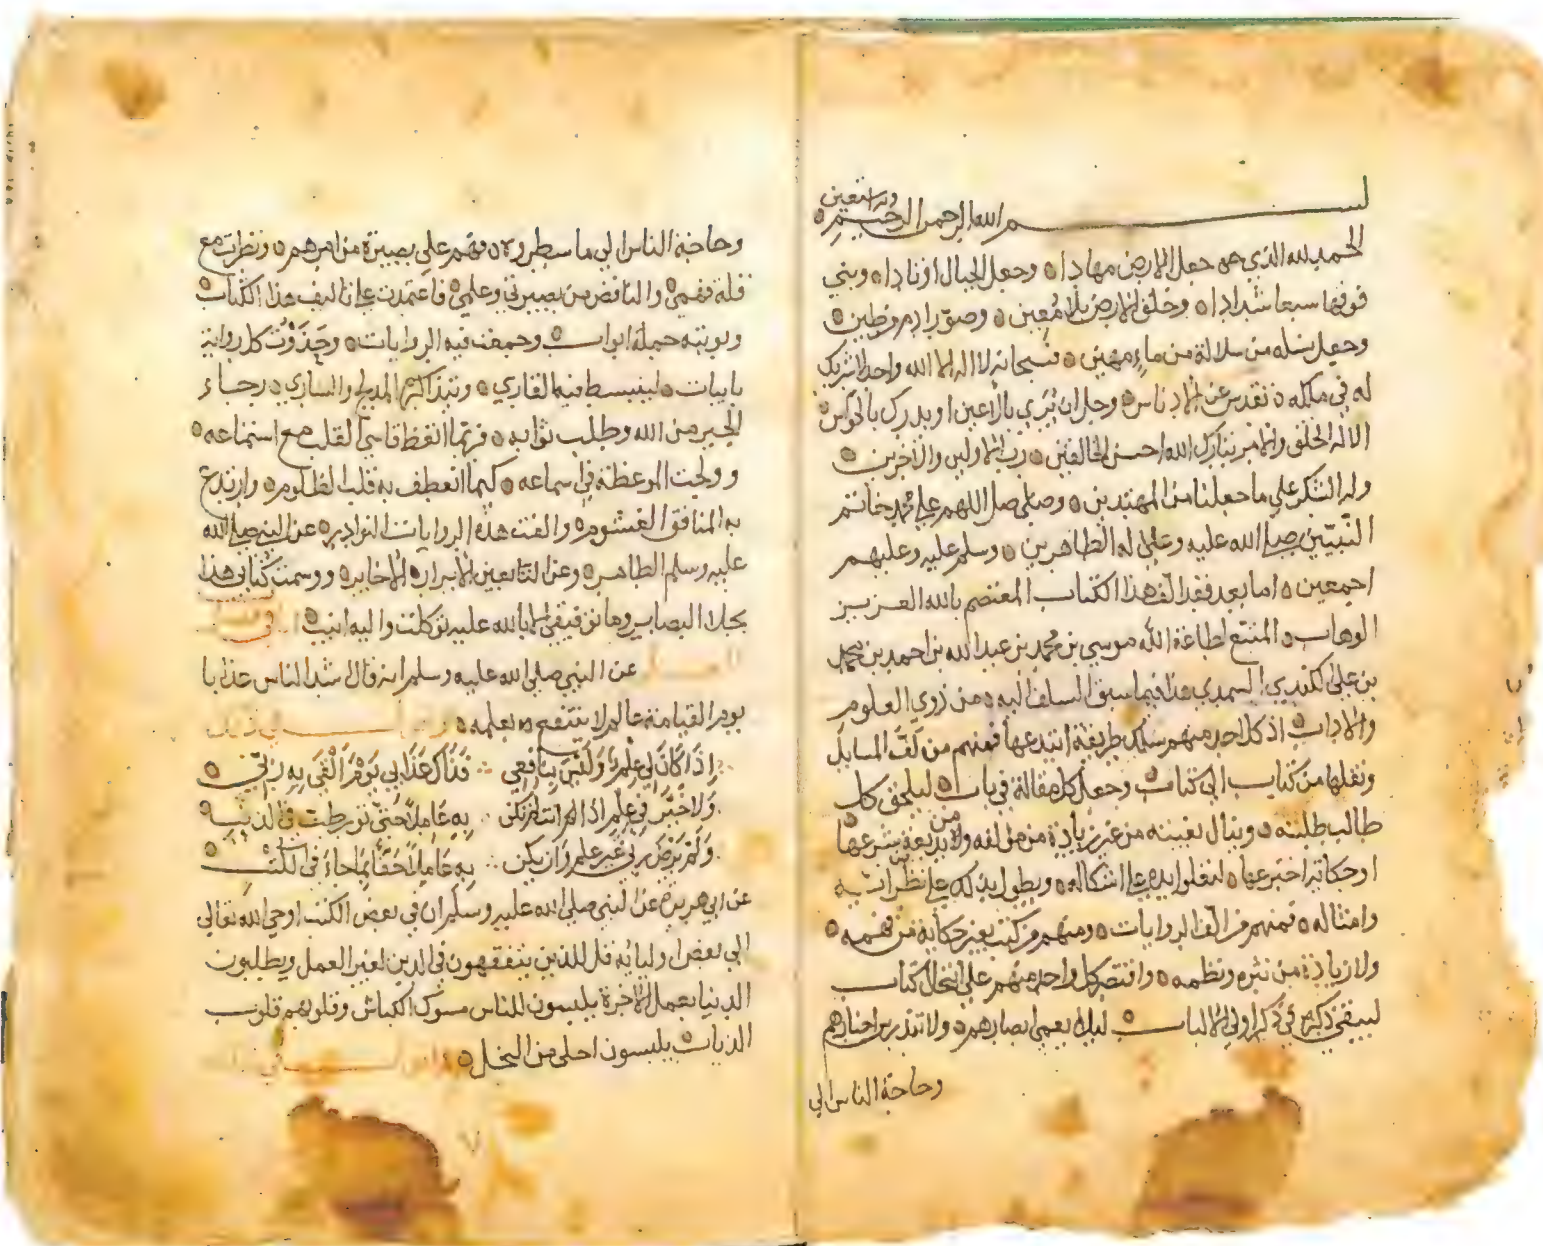 وبه نستعين
بسم الله الرحمن الرحيم
الحمد لله الذي جعل الارض مهادا ه وجعل الجبال اوتادا ه وبني
فوقها سبعا شدادا ه وخلق الارض بلا مُعين ه وصوّر ادم من طين ه
وجعل نسله من سلالة من ماءٍ مهين ه فسبحانه لا اله الا الله واحد لا شريك
له في ملكه ه تقدس عن الادناس ه وجل ان يُرَي بالاعين او يدرك بالحواس ه
الا له الخلق والامر تبارك الله احسن الخالقين ه رب الاولين والآخرين ه
وله الشكر علي ما جعلنا من المهتدين ه وصلي صل اللهم علي محمد خاتم
النّبيّين صلي الله عليه وعلي اله الطاهرين ه وسلم عليه وعليهم
اجمعين ه اما بعد فقد الّف هذا الكتاب المعتصم بالله العزيز
الوهاب ه المتبع لطاعة الله موسي بن محمد بن عبدالله بن احمد بن محمد
بن علي الكندي السمدي هذا فيما سبق السلف اليه ه من ذوي العلوم
والاداب ه اذ كل احد منهم سلك طريقة ابتدعها فمنهم من الّف المسايل
ونقلها من كتاب الي كتاب ه وجعل كل مقالة في باب ه ليلحق كل
طالب طلبته ه وينال بغيته من غير زيادة من مؤلفه ولا من بديعة شرعها
او حكاية اخترعها ه ويطول بذلك علي نظرائه
وامثاله ه فمنهم من الّف الروايات ه ومنهم من كتب بغير حكاية من فهمه ه
ولا زيادة من نثره ونظمه ه واقتصر كل واحد منهم علي انتحال كتاب
ليبقي ذكره في ذكر اولي الالباب ه ليلا يعمي ابصارهم ه ولا تندرس اخبارهم
وحاجة الناس الي
وحاجة الناس الي ما سطروه ه فهم علي بصيرة من امرهم ه ونظرت مع
قلة فهمي والناقص من بصيرتي وعلمي ه فاعتمدت علي تاليف هذا الكتاب ه
وبوبته جملة ابواب ه وجمعت فيه الروايات ه وحَذَوْتُ كل رواية
بابيات ه لينبسط فيها القاري ه وتبذاكرها المدلج والساري ه رجاء
الخير من الله وطلب ثوابه ه فربما اتعظ قاسي القلب مع استماعه ه
وولجت الموعظة في اسماعه ه كيما انعطف به قلب الظلوم ه وارتدع
به المنافق الغشوم ه والفت هذه الروايات النوادر ه عن النبي صلي الله
عليه وسلم الطاهر ه وعن التابعين الابرار ه الاخاير ه ووسمت كتابي هذا
بجلاء البصاير وما توفيقي الا بالله عليه توكلت واليه انيب ه
عن النبي صلي الله عليه وسلم انه قال اشد الناس عذابا
يوم القيامة عالم لا ينتفع بعلمه ه
اِذَا كَانَ لِي عِلْمٌ وَلَيْسَ بِنَافِعِي ∴ فَذَاكَ عَذَابي يَوْمَ اَلْقَي بِهِ رَبّي ه
وَلَا خَيْرَ فِي عِلْمٍ اِذَا لم تَكن ∴ بِهِ عَامِلاً حَتّي تورطت في الذنب ه
وَلَمْ يَرْضَ رَبي غَيرَ عِلمٍ وَاَن يكن ∴ بِهِ عَامِلاً حَقّا بِمَا جاءَ في الكُتْبِ ه
عن ابي هريرة عن النبي صلي الله عليه وسلم ان في بعض الكتب اوحي الله تعالي
الي بعض اوليائه قل للذين يتفقهون في الدين لغير العمل ويطلبون
الدنيا بعمل الاخرة يلبسون للناس مسوك الكباش وقلوبهم قلوب
الذياب ه يلبسون احلي من النحل ه